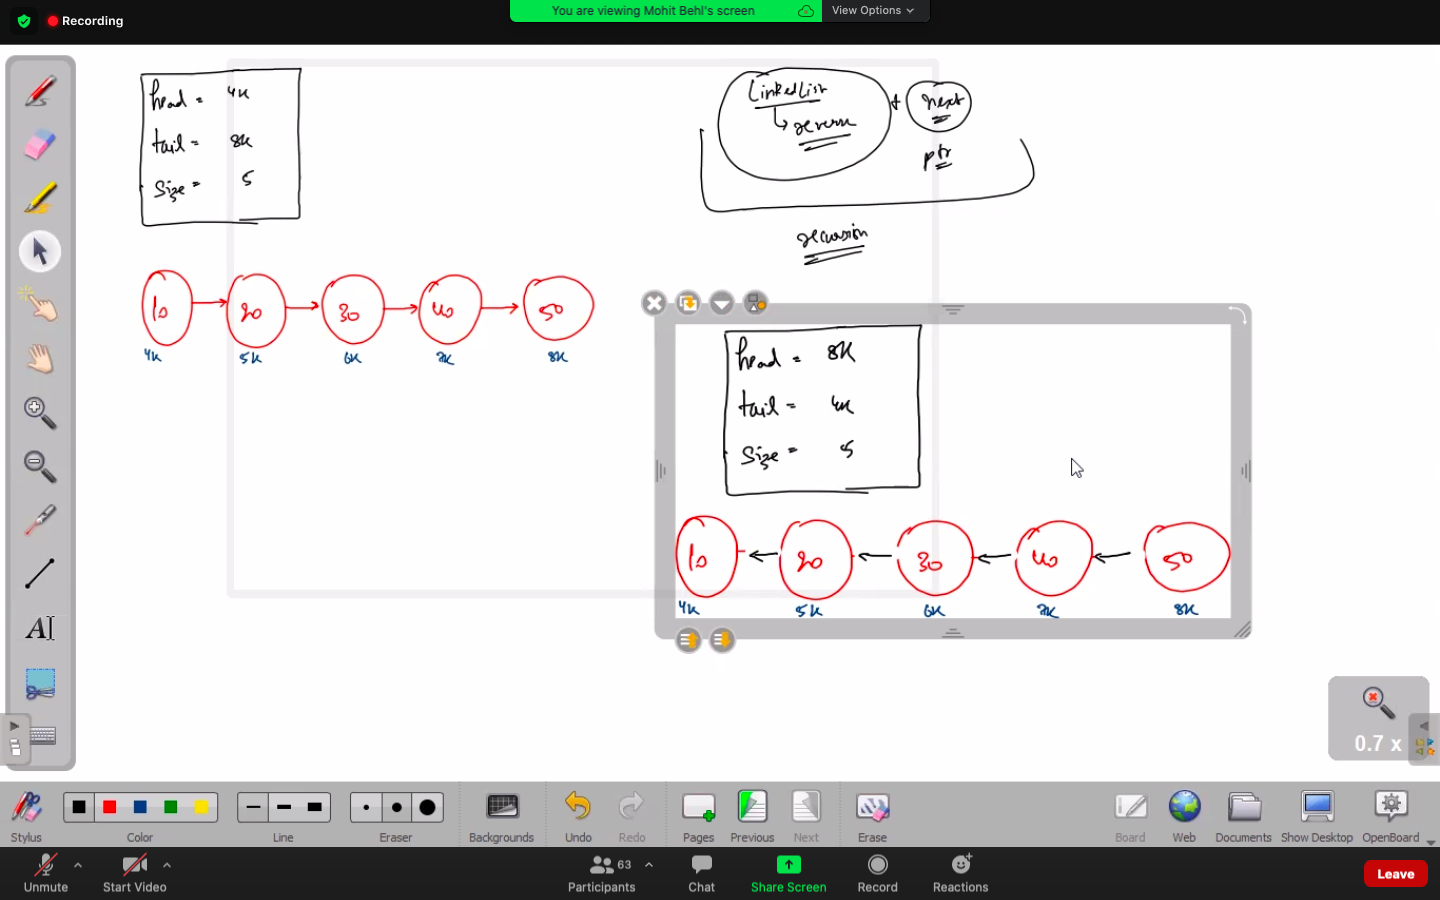 Recording
You are viewing Mohit Behl's screen
View Options
head = 4K
tail = 8K
Size = 5
LinkedList
↳ reverse
+ next
ptr
recursion
10 → 20 → 30 → 40 → 50
4K 5K 6K 7K 8K
head = 8K
tail = 4K
Size = 5
10 ← 20 ← 30 ← 40 ← 50
4K 5K 6K 7K 8K
A
0.7 x
Stylus Color Line Eraser Backgrounds Undo Redo Pages Previous Next Erase Board Web Documents Show Desktop OpenBoard
63
Unmute Start Video Participants Chat Share Screen Record Reactions
Leave